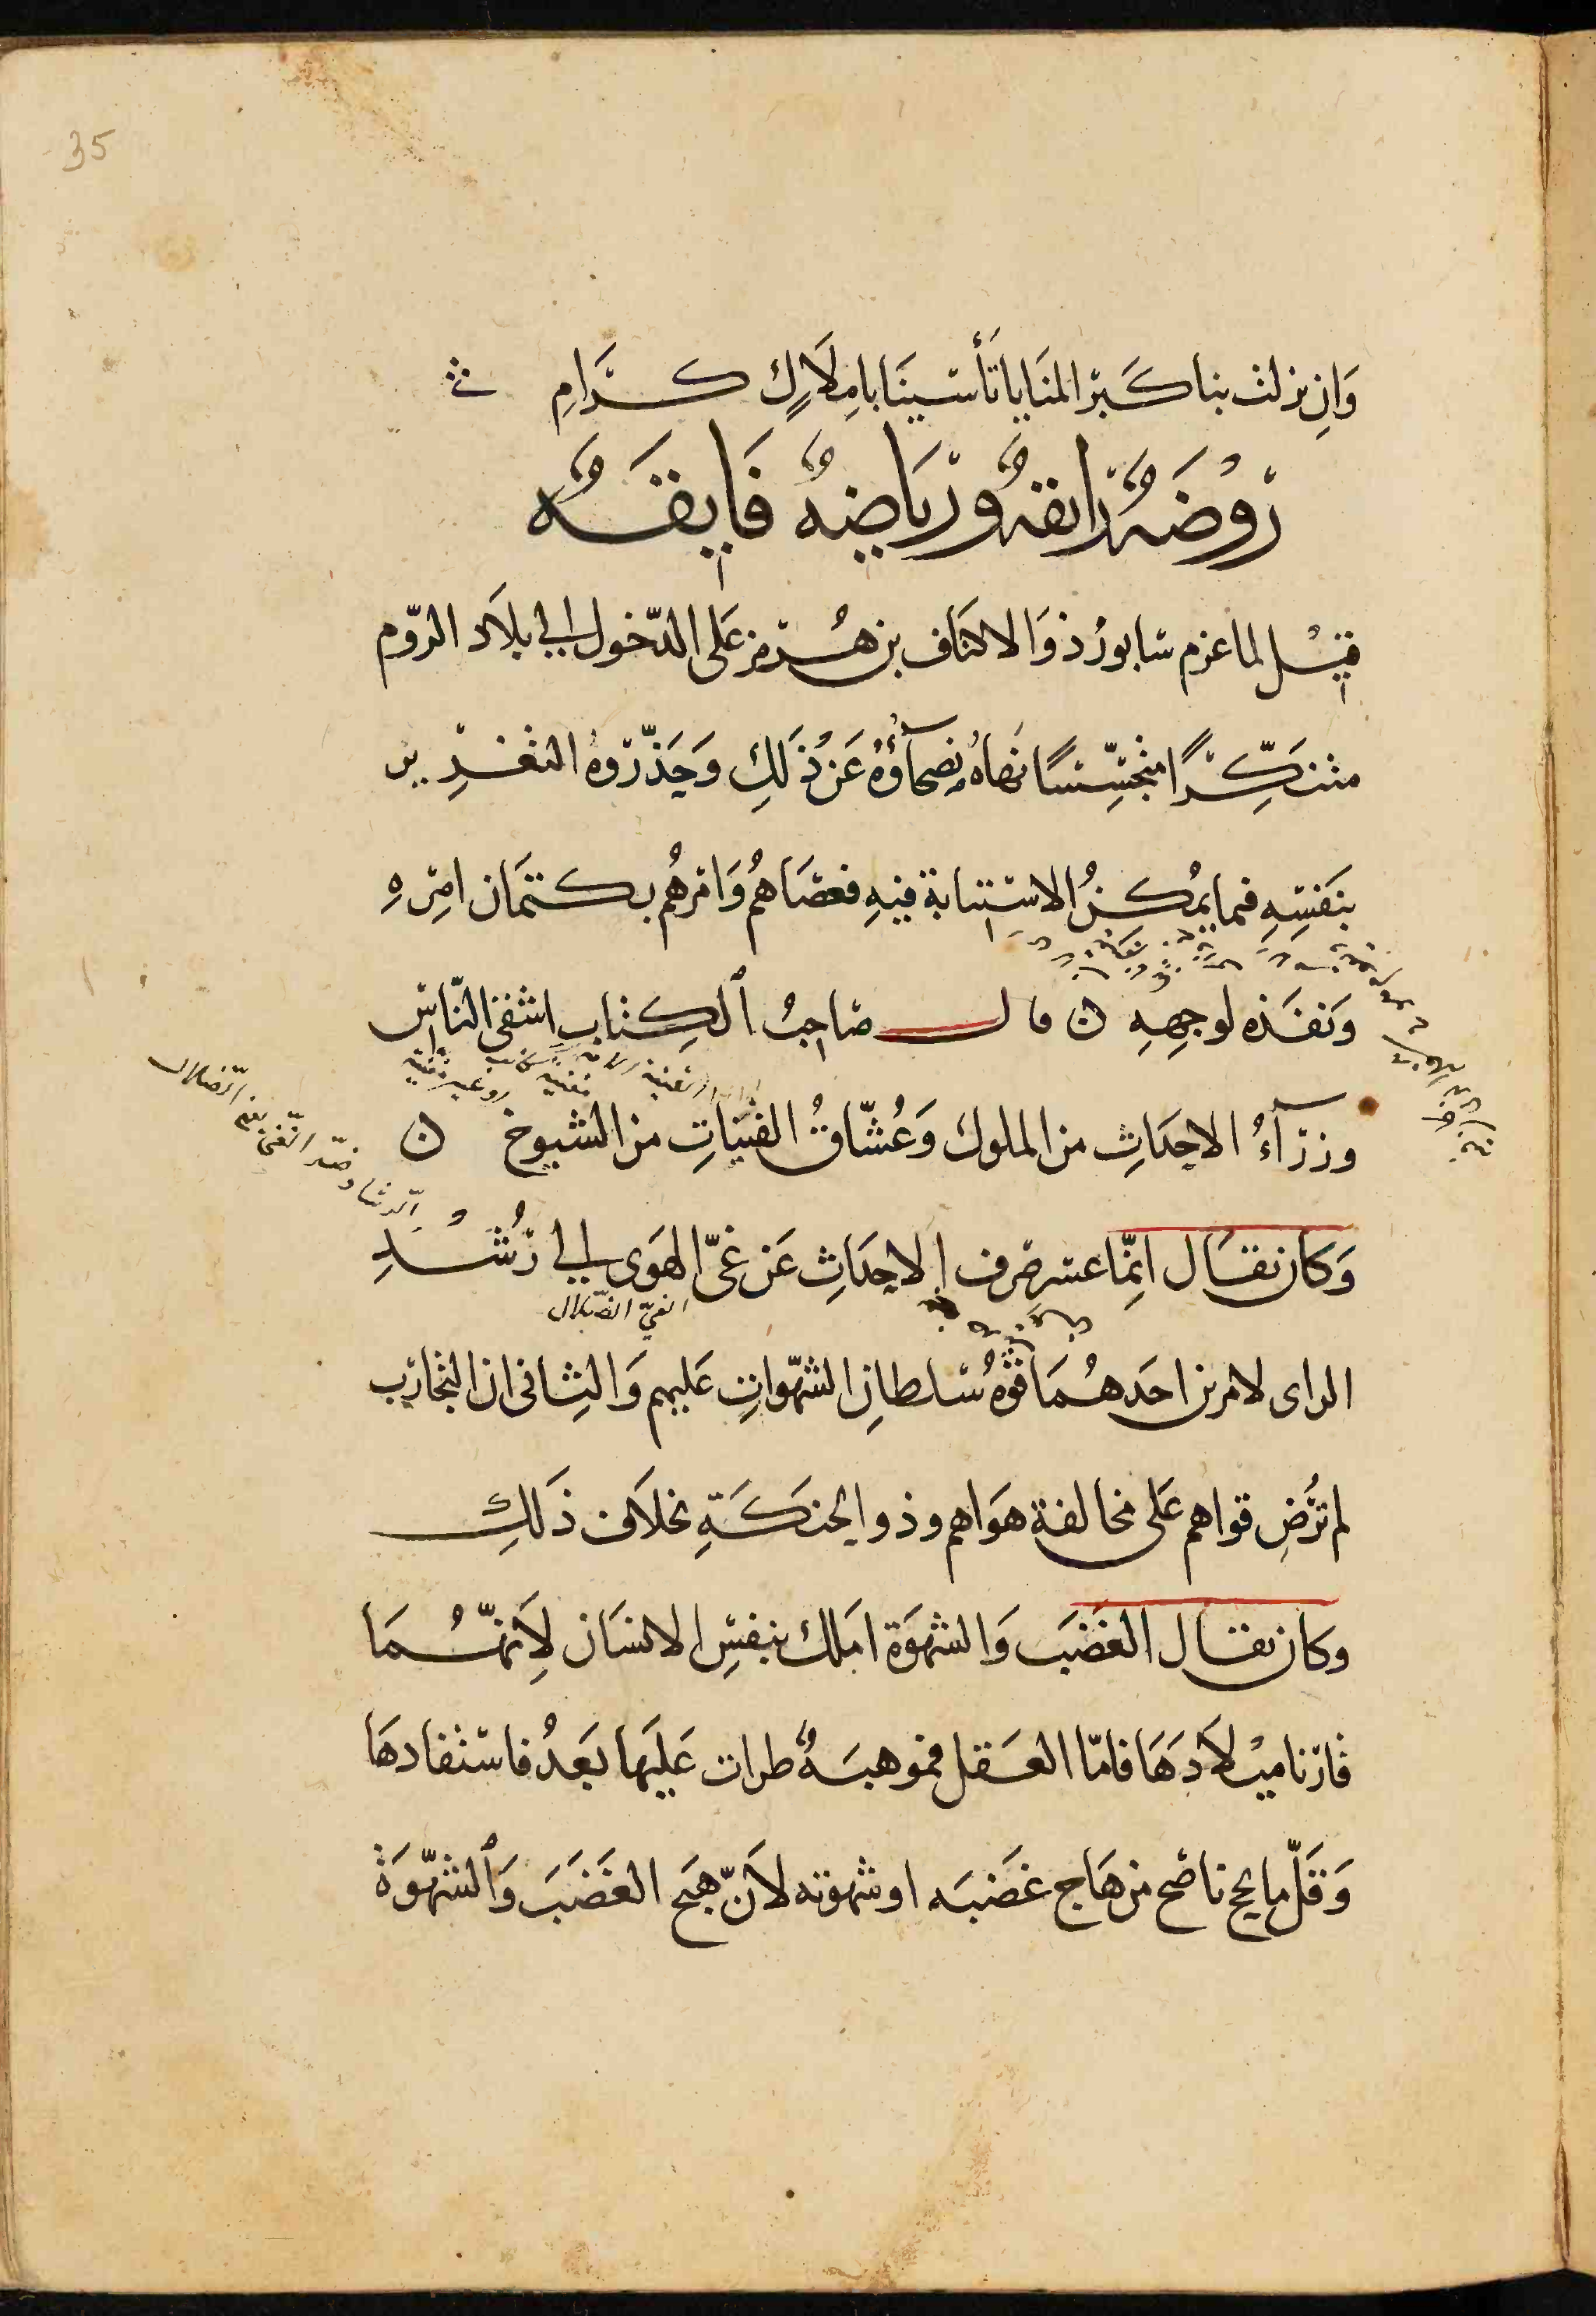 35
وَاِن نزلت بنا كَبْر المنَايا تَأسّينَا بامِلَاكٍ كرَامِ
رَوْضَةٌ رَائقةٌ وَرِيَاضةٌ فَايقَةٌ
قيْل لما عزم سابورُ ذوَالاكتاف بن هُرمز عَلى الدّخول الي بلَاد الروّم
متنكِّرًا متجسِّسًا نهاهُ نصحآؤُهُ عَن ذَلِكَ وَحَذّروهُ التغرير
بنَفسِهِ فيما يُمكنُ الاستنابة فيهِ فعصَاهُمْ وَامرهُم بكتمَان امرِهِ
وَنفَذ لوجههِ ن قال صَاحبُ الكِتاب اشقي النّاس
وزرآءُ الاحدَاثِ من الملوك وَعُشّاقُ الفتيَاتِ من الشيوخ ن
وَكان يقَال انِّما عسر صَرف الاحدَاثِ عَن غيّ الهَوى الي رُشدِ
الغيّ الضّلال
الراى لامرين احَدهُمَا قوّةُ سُلطانِ الشهّواتِ عَليهم وَالثِانى ان التجَارب
لم تَرُضِ قواهم عَلى مخالفة هوَاهم وذوالحنكَةِ بخلَاف ذَلكَ
وكان يقَال الغَضَبَ وَالشهوَة املك بنفسِ الانسَان لِاَنهّمَا
قارنا ميْلادَهَا فامّا العَقل فموهبَةٌ طرات عَليَها بَعدُ فاستفادهَا
وَقَلّ ما يحج ناصَح من هَاج غَضبَه او شهوته لاَنّ هَيجَ الغَضَبَ وَالشهّوَة